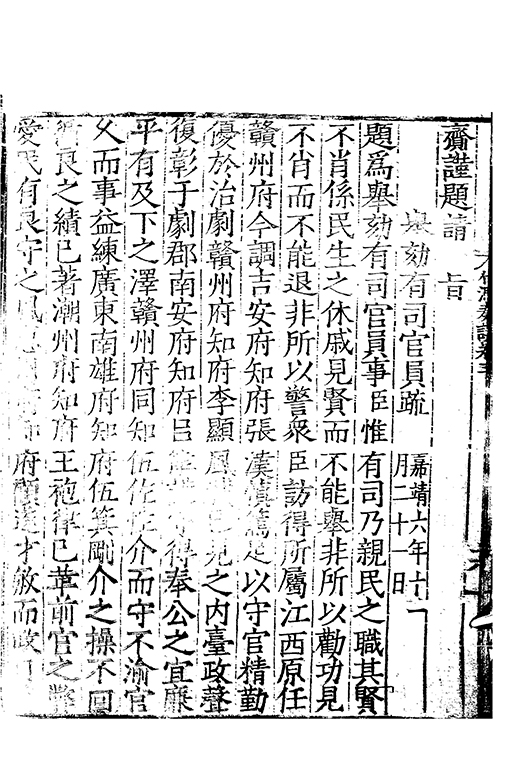 齋謹題請 旨
舉劾有司官員疏 嘉靖六年十二月二十一日
題爲舉劾有司官員事臣惟有司乃親民之職其賢
不肖係民生之休戚見賢而不能舉非所以勸功見
不肖而不能退非所以警衆臣訪得所屬江西原任
贛州府今調吉安府知府張漢慎篤足以守官精勤
優於治劇贛州府知府李顯之内臺政聲
復彰于劇郡南安府知府呂得奉公之宜廉
平有及下之澤贛州府同知伍佐性介而守不渝官
久而事益練廣東南雄府知府伍箕剛介之操不回
之績已著潮州府知府王袍律已革前官之弊
愛民有良守之風府才敏而政